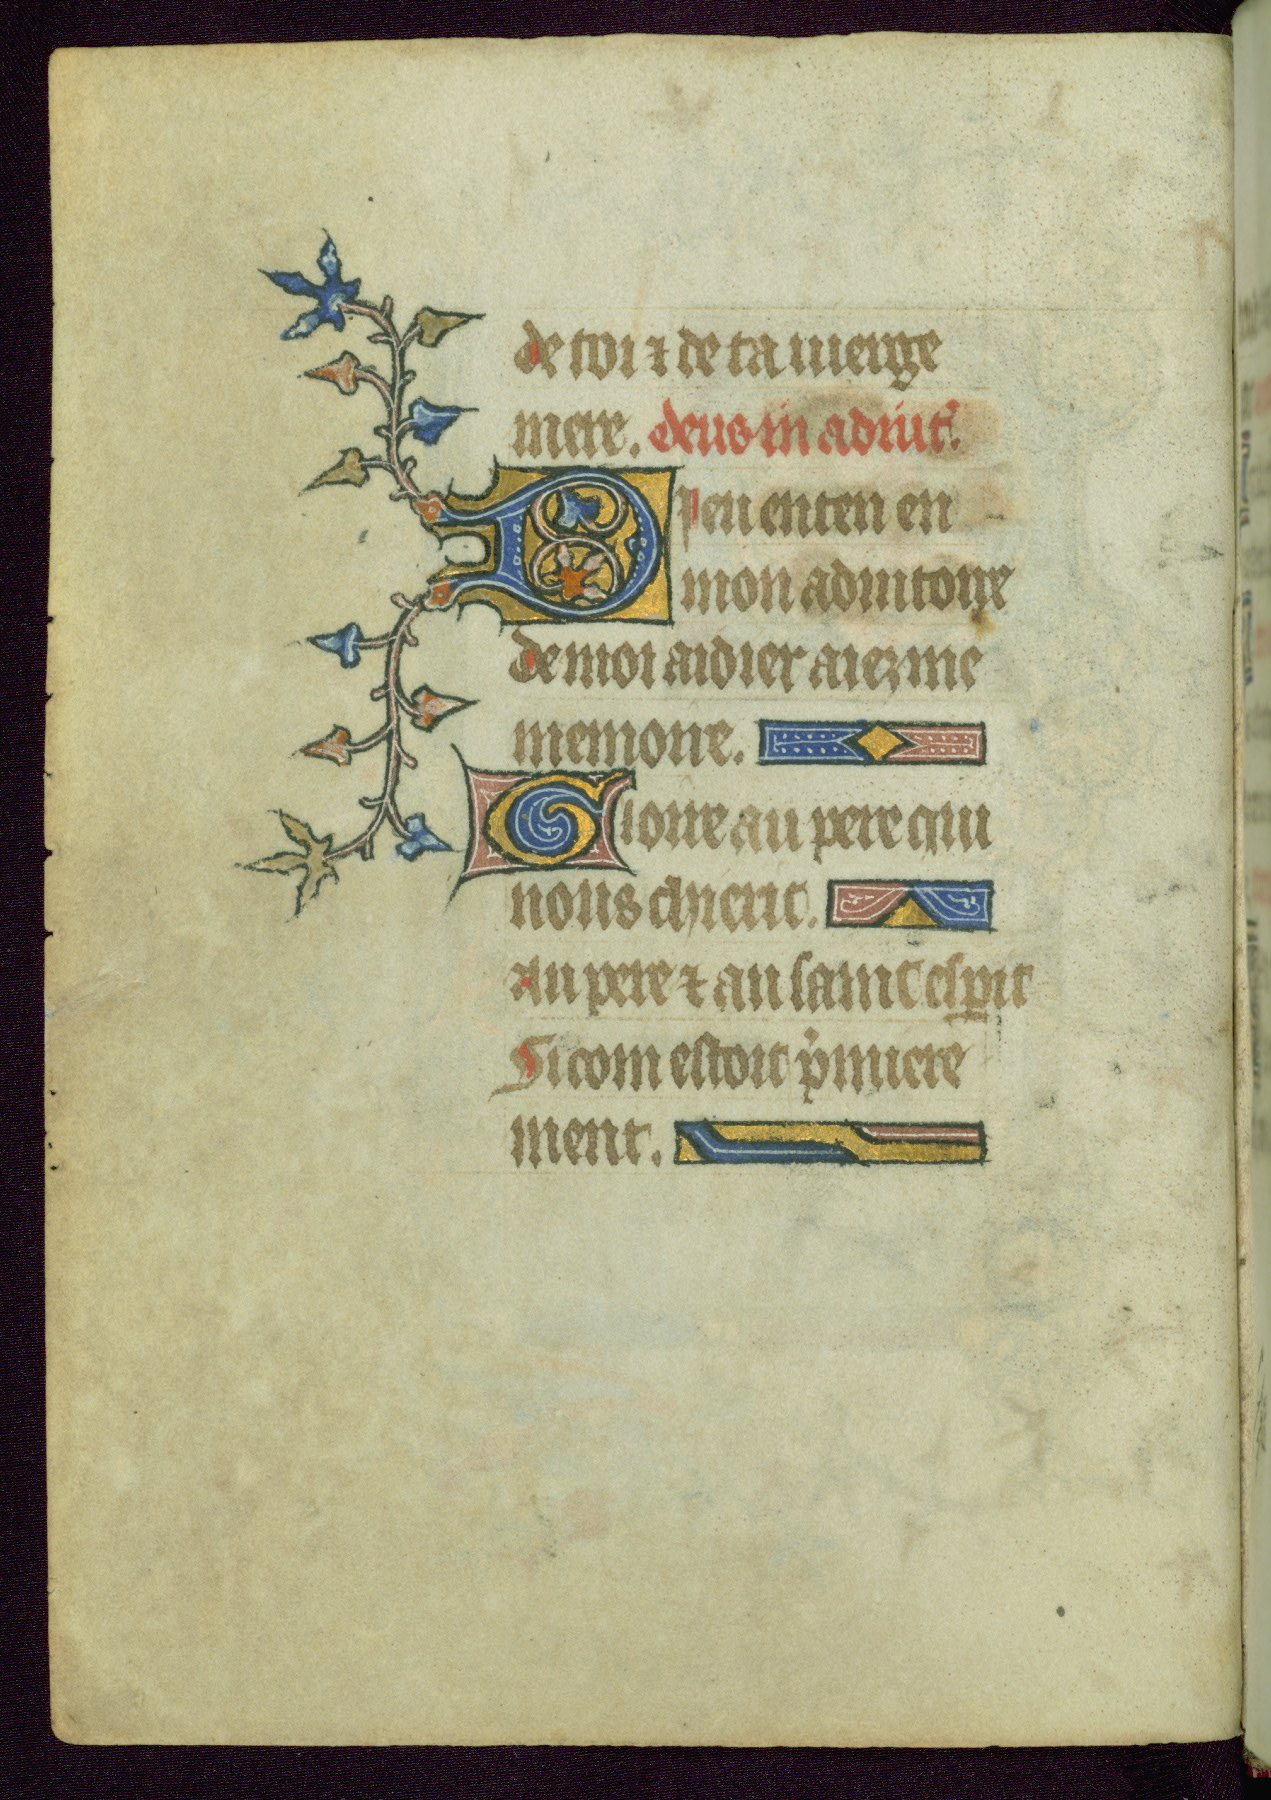 de toi ⁊ de ta vierge
mere. Deus in adiut'.
Dieu enten en
mon adiutoire
de moi aidier aiez me
memoire.
Gloire au pere qui
nous cherit.
Au pere ⁊ au saint esp̄it
Si com estoit p̾miere
ment.